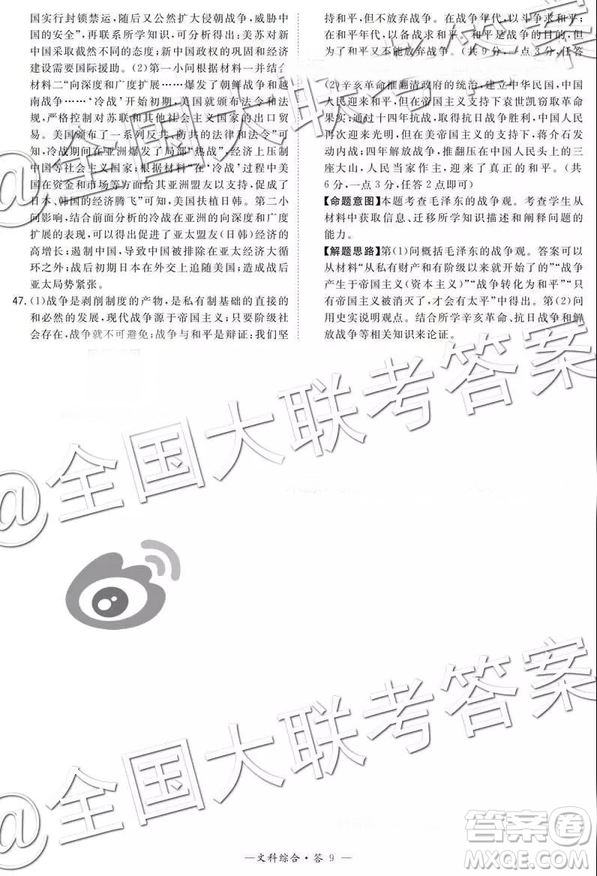 国实行封锁禁运,随后又公然扩大侵朝战争,威胁中
国的安全”,再联系所学知识可得出;美苏对新中国
采取截然不同的态度;新中国政权的巩固和经济
建设需要国际援助。(2)第一小问根据材料一并结合
材料二“向深度和广度扩展……爆发了朝鲜战争和越
南战争……‘冷战’开始初期,美国就颁布法令和法
规,严格控制对苏联和其他社会主义国家的出口贸
易。美国颁布了一系列反共、防共的法律和法令”可
得,冷战期间在亚洲爆发了局部“热战”,经济上压制
社会主义国家;根据材料二“在‘冷战’过程中美国
在资金和市场等方面给其亚洲盟友以支持,促进了
日本、韩国的经济腾飞”可知,美国扶植日韩。第二小
问影响,结合前面分析的冷战在亚洲的向深度和广度
扩展的表现,可以得出有亚太盟友(日韩)经济的
高增长;遏制中国,导致中国被排除在亚太经济大循
环之外;战后初期日本在对外政策上追随美国;战后
亚太局势紧张。
47.(1)战争是剥削制度的产物,是私有制基础的直接的
和必然的发展,现代战争源于帝国主义;只要阶级社会
存在,战争就不可避免;战争与和平是辩证的;我们坚
持和平,但不放弃战争。(共9分,一点3分,任答
(2)辛亥革命推翻清政府的统治,建立中华民国,中国
人民迎来和平,但由于帝国主义支持下袁世凯窃取革命
果实;通过十四年抗战,取得抗日战争胜利,中国人民
再次迎来和平,但在美帝国主义支持下,蒋介石发动
内战;四年解放战争,推翻压在中国人民头上的三
座大山,中国人民终于迎来了真正的和平。(共
6分,一点3分,任答2点即可)
【命题意图】本题考查毛泽东的战争观。考查学生从
材料中获取信息、迁移所学知识描述和阐释问题的
能力。
【解题思路】第(1)问概括毛泽东的战争观。答案可以
从材料“从私有财产和有阶级以来就开始了”“战争
产生于帝国主义(资本主义)”“战争转化为和平”“只
有帝国主义被消灭了,才会有太平”中得出。第(2)问
用史实说明观点。可以结合所学辛亥革命、抗日战争和
解放战争等相关知识来论证。
@全国大联考答案
@全国大联考答案
@全国大联考答案
—文科综合·答 9 —
答案圈
MXQE.COM